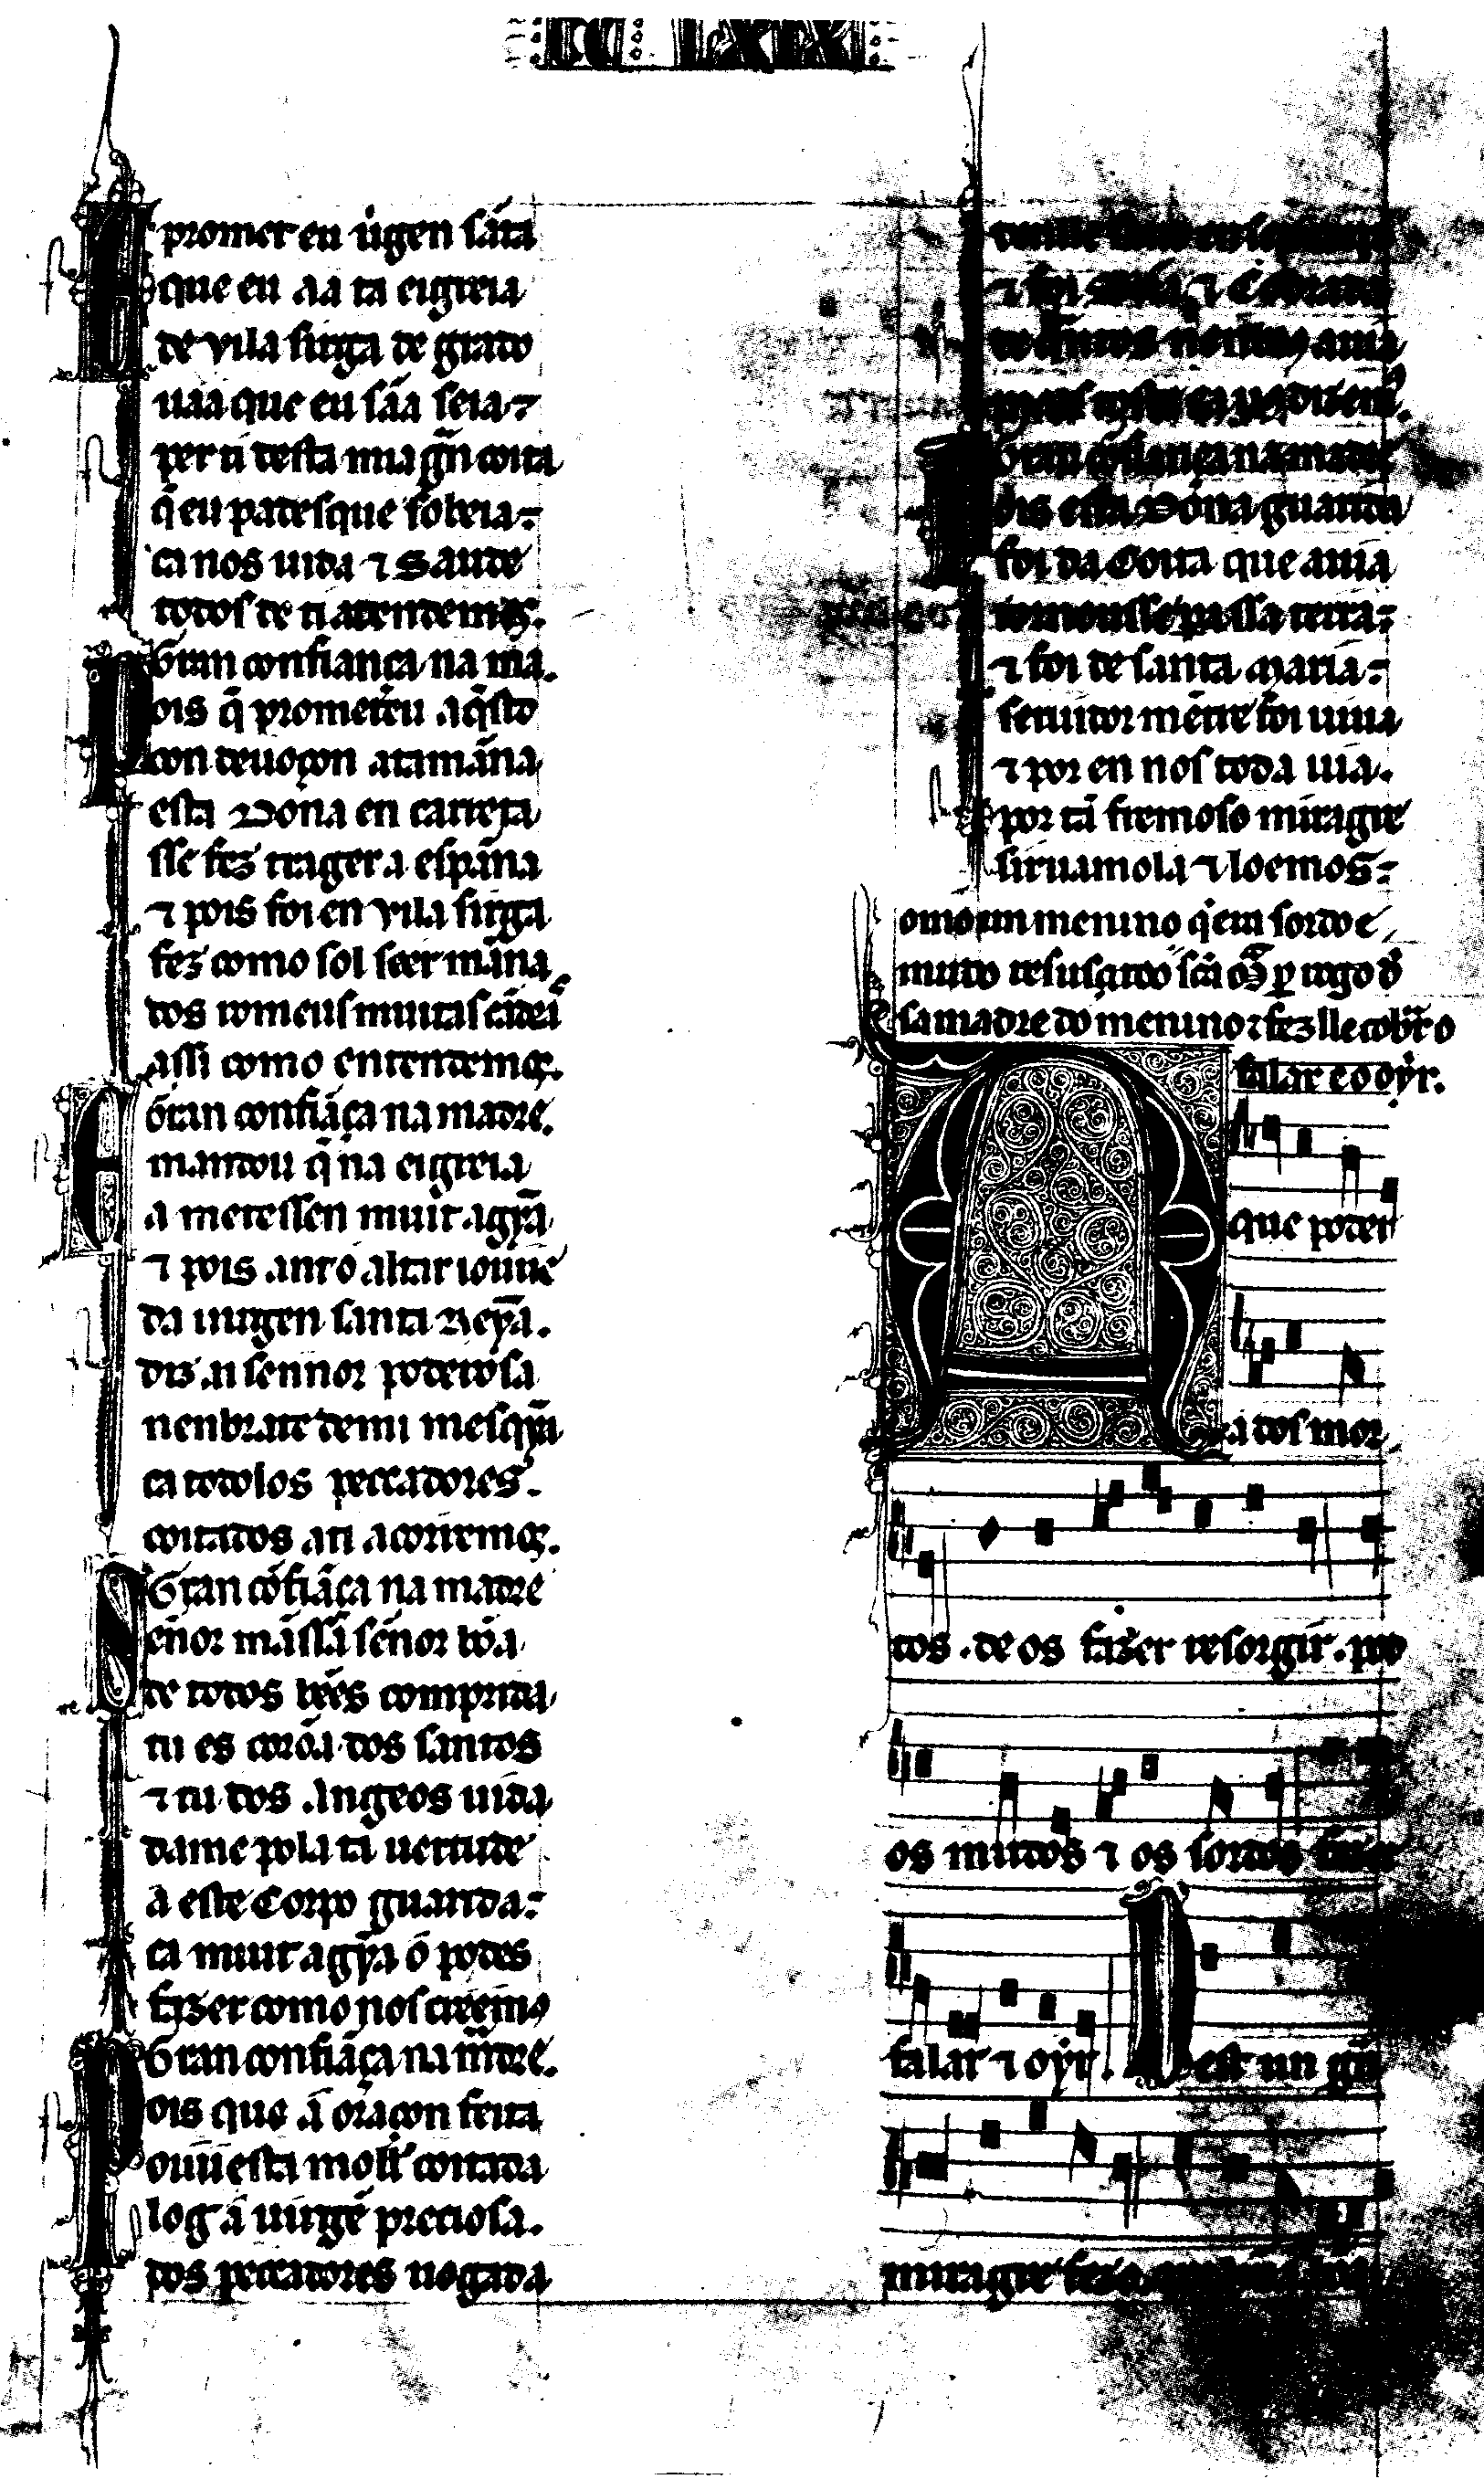 CC LXIX
E prometeu uirgen sãta
que eu aa ta eigreia
de vila sirga de grado
uaa que eu sãa seia
per ti desta mia gñ coita
q̃ eu padesque sobeia
ca nos uida ⁊ saude
todos de ti atendemos.
Gran confiança na ma.
Pois q̃ prometeu aq̃sto
con deuoçon atamãna
esta Dona en carreta
sse fez trager a espãna
⁊ pois foi en vila sirga
fez como sol seer mãna
dos romeus muita
assi como entendemos.
Gran confiãça na madre.
E mandou q̃ na eigreia
a metessen muit agỹa
⁊ pois ant o altar
da uirgen santa Reỹa.
diz ai sennor poderosa
nenbrate de mi mesqỹa
ca todolos peccadores.
coitados a ti acorremos.
Gran cõfiãça na madre
Señor mãssa señor bõa
de todos bẽes comprida
tu es corõa dos santos
⁊ tu dos Angeos uida
dame pola ta uertude
a este Corpo guarida
ca muit agỹa o podes
fazer como nos creemos
Gran confiãça na madre.
Pois que a oraçon feita
ouu esta moll̃ coitada
log a uirgẽ preciosa.
dos peccadores uogada
⁊ foi
Gran confiança na madre
Dis esta Dona guarida
foi da Coita que auia
tornousse pa ssa terra
⁊ foi de santa Maria
seruidor mentre foi uiua
⁊ por en nos toda uia.
por tã fremoso miragre
siruamola ⁊ loemos
omo un menino q̃ era sordo e
mudo resuscitóo scã Mã per rogo de
sa madre do menino ⁊ fez lle cobrar o
falar e o oyr.
A que poder
a dos mor
tos . de os fazer resorgir . pod
os mudos ⁊ os sordos fazer
falar ⁊ oyr . Dest un gñ
miragre fezo